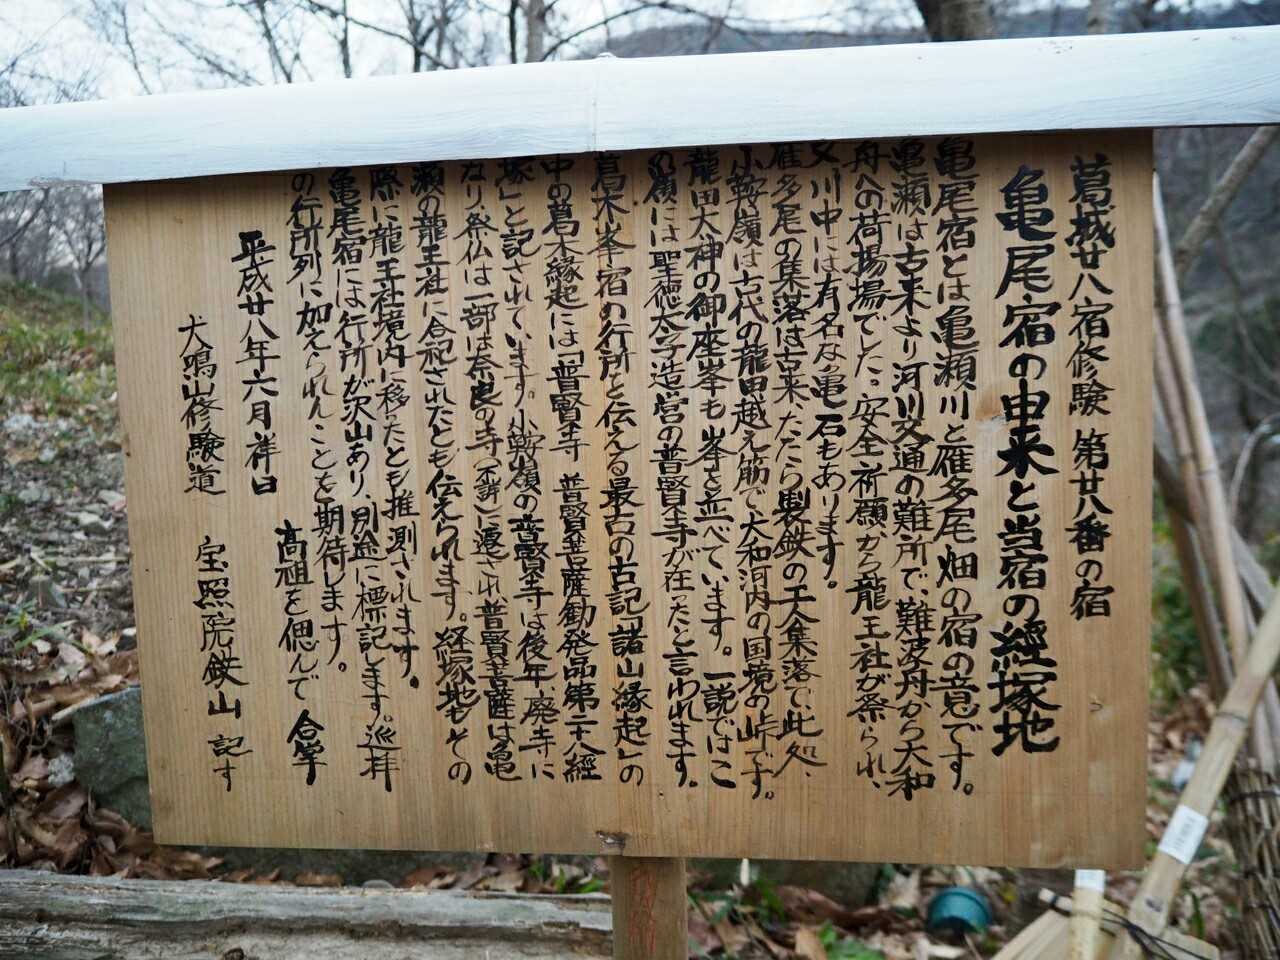 葛城廿八宿修験 第廿八番の宿
亀尾宿の由来と当宿の經塚地
亀尾宿とは亀瀬川と雁多尾畑の宿の意です。
亀瀬は古来より河川交通の難所で、難波舟から大和
舟への荷揚場でした。安全祈願から龍王社が祭られ、
又、川中には有名な亀石もあります。
雁多尾の集落は古来、たたら製鉄の大集落で、此処、
小鞍嶺は古代の龍田越え筋で、大和河内の国境の峠です。
龍田大神の御座峯も峯を並べています。一説ではこ
の嶺には聖徳太子造営の普賢寺が在ったと言われます。
葛木峯宿の行所と伝える最古の古記「諸山縁起」の
中の葛木縁起には「普賢寺 普賢菩薩勧発品第二十八經
塚」と記されています。小鞍嶺の普賢寺は後年、廃寺に
なり、祭仏は一部は奈良の寺(不詳)に遷され普賢菩薩は亀
瀬の龍王社に合祀されたとも伝えられます。経塚地もその
際に龍王社境内に移たとも推測されます。
亀尾宿には行所が沢山あり、別途に標記します。巡拝
の行所列に加えられんことも期待します。
高祖を偲んで 合掌
平成廿八年六月祥日
犬鳴山修験道 宝照院鉄山 記す